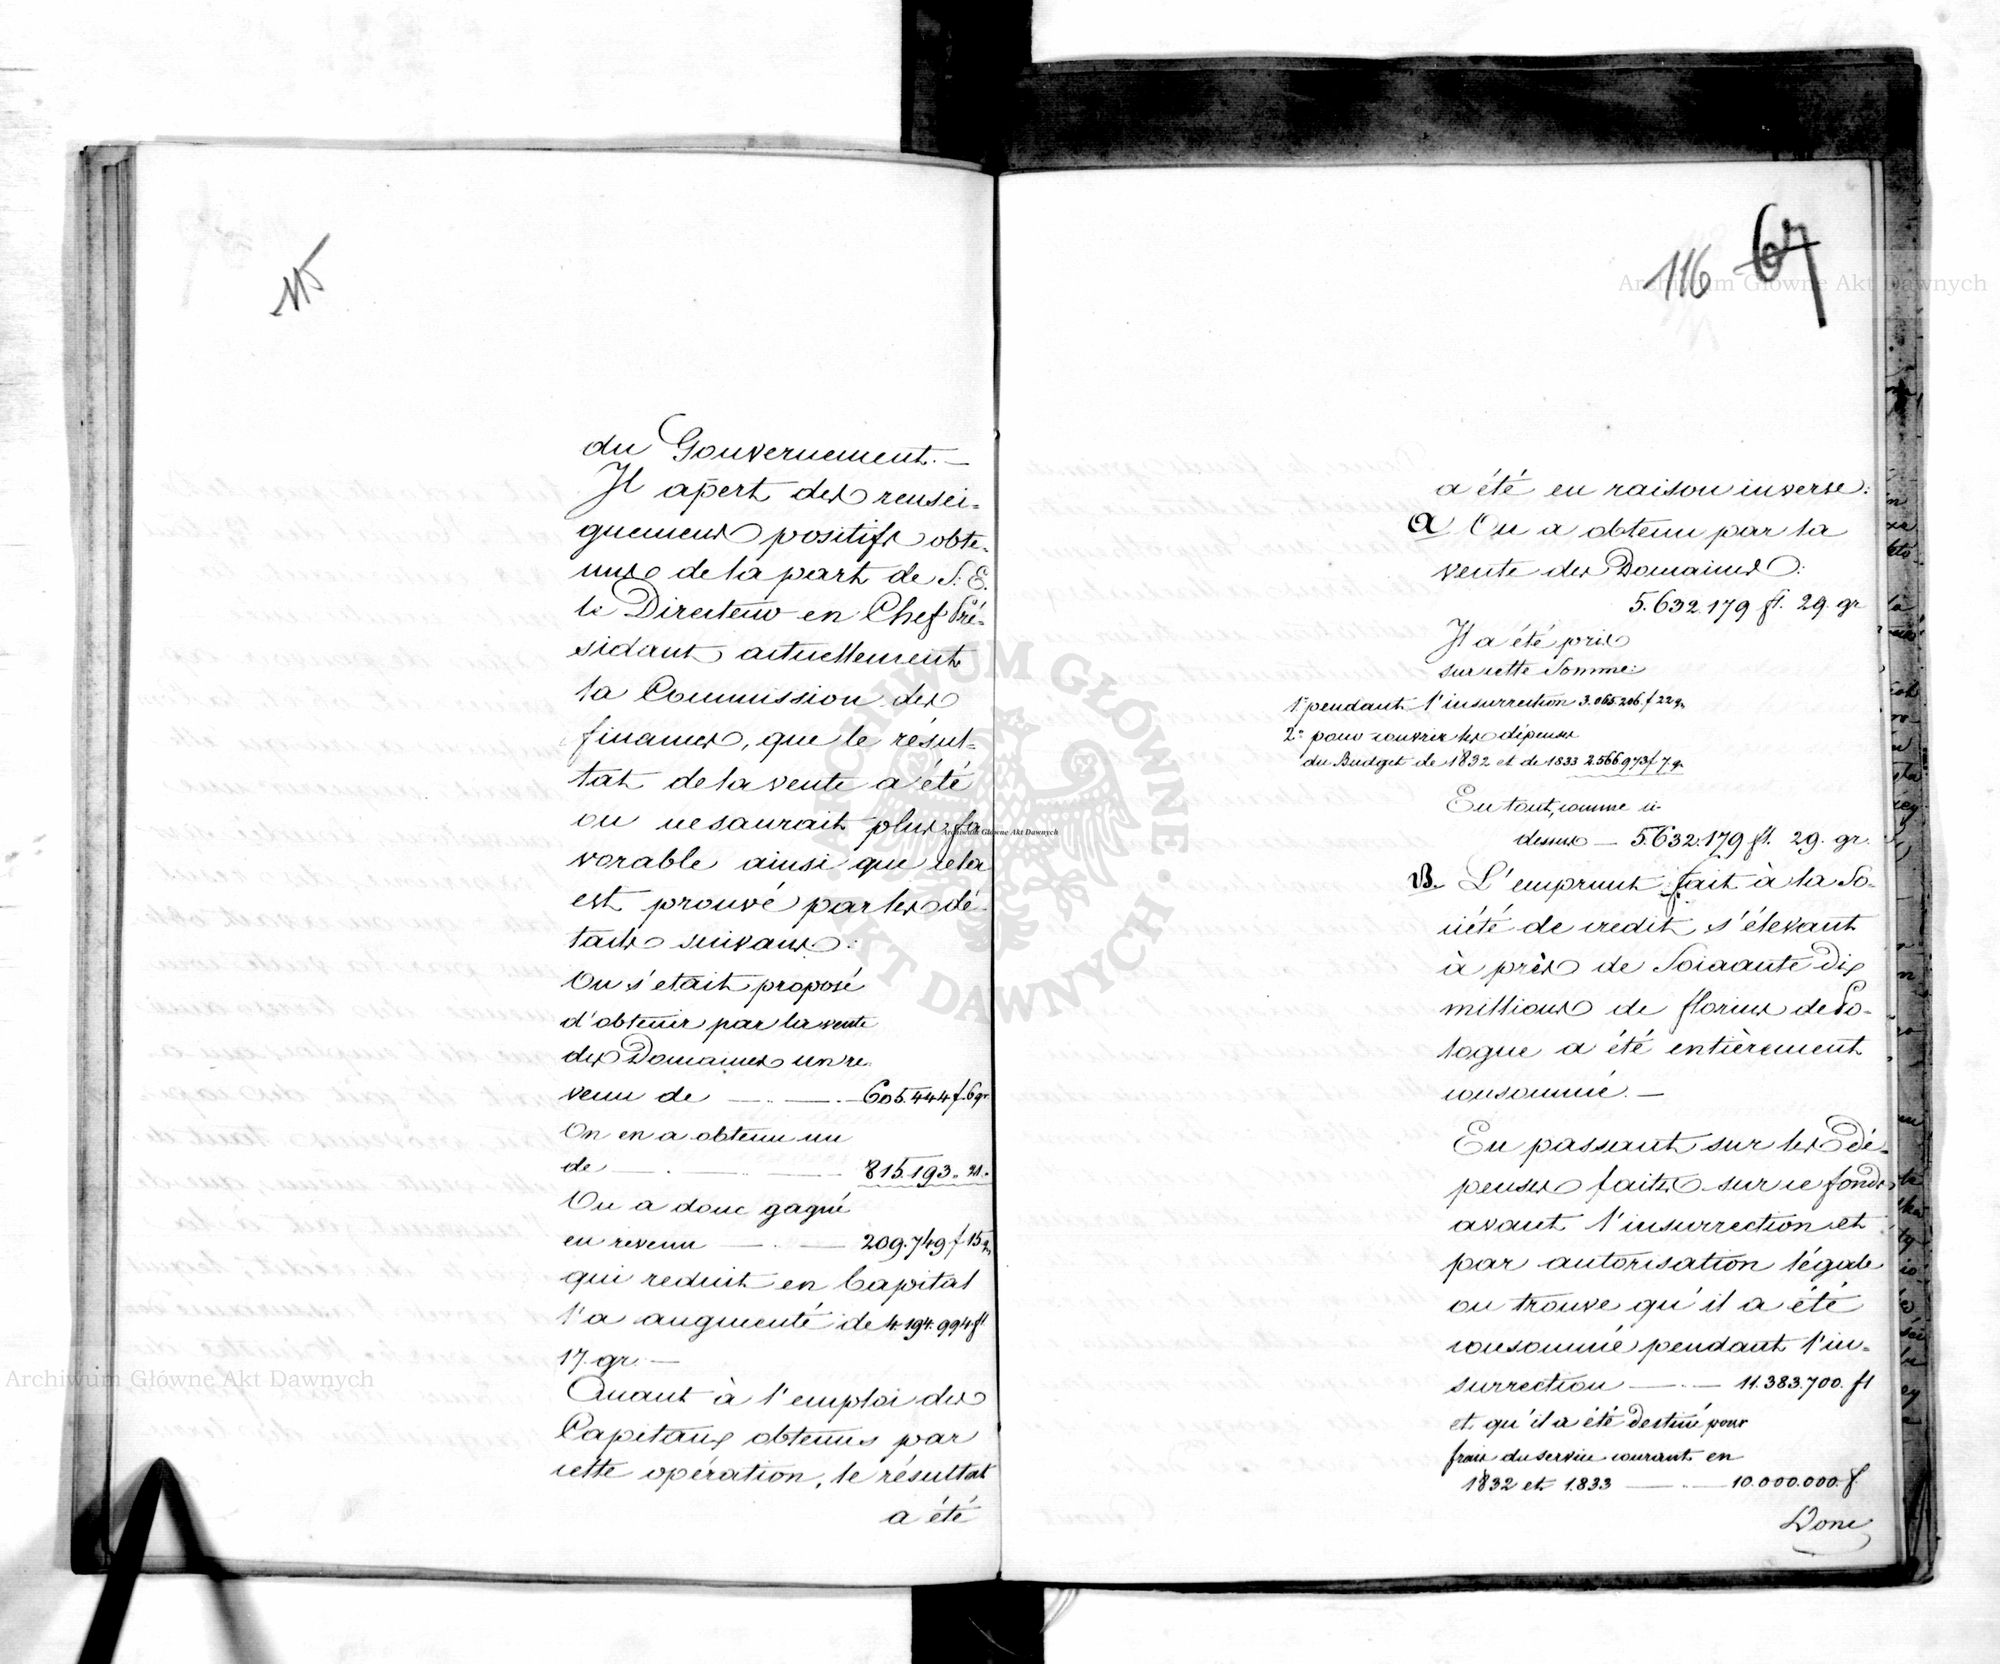 115
du Gouvernement. —
Il apert des rensei-
gnemens positifs obte-
nus de la part de S. E.
le Directeur en Chef Pré-
sidant actuellement
la Commission des
finances, que le résul-
tat de la vente a été
on ne saurait plus fa
vorable ainsi que cela
est prouvé par les dé-
tails suivans:
On s'etait proposé
d'obtenir par la vente
des Domaines un re
venu de — 605.444 f. 6 gr.
On en a obtenu un
de — 815.193. 21.
On a donc gagné
en revenu — 209.749 f 15 g.
qui reduit en Capital
l'a augmenté de 4.194.994 fl
17. gr. —
Quant à l'emploi des
Capitaux obtenus par
cette opération, le résultat
a été
116 67
a été en raison inverse:
a On a obtenu par la
vente des Domaines:
5.632.179 fl. 29. gr
Il a été pris
sur cette Somme:
1° pendant l'insurrection 3.065.206. f 22 g.
2° pour couvrir les dépenses
du Budget de 1832 et de 1833 2.566.973 f 7 g.
En tout, comme ci-
dessus — 5.632.179 fl. 29. gr.
B. L'emprunt fait à la So-
ciété de credit, s'élevant
à près de Soixante dix
millions de florins de Po-
logne a été entièrement
consommé. —
En passant sur les Dé-
penses faites sur ce fonds
avant l'insurrection et
par autorisation légale
on trouve qu'il a été
consommé pendant l'in-
surrection — 11.383.700. fl
et qu'il a été destiné pour
frais du service courant en
1832 et 1833 — 10.000.000. f.
Donc
Archiwum Główne Akt Dawnych
Archiwum Główne Akt Dawnych
Archiwum Główne Akt Dawnych
ARCHIWUM GŁÓWNE • AKT DAWNYCH •